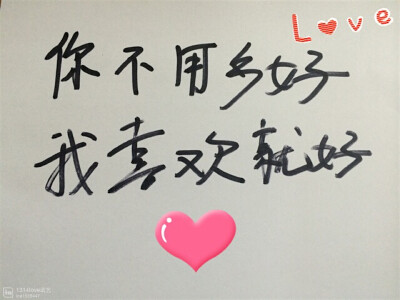 Love
你不用多好
我喜欢就好